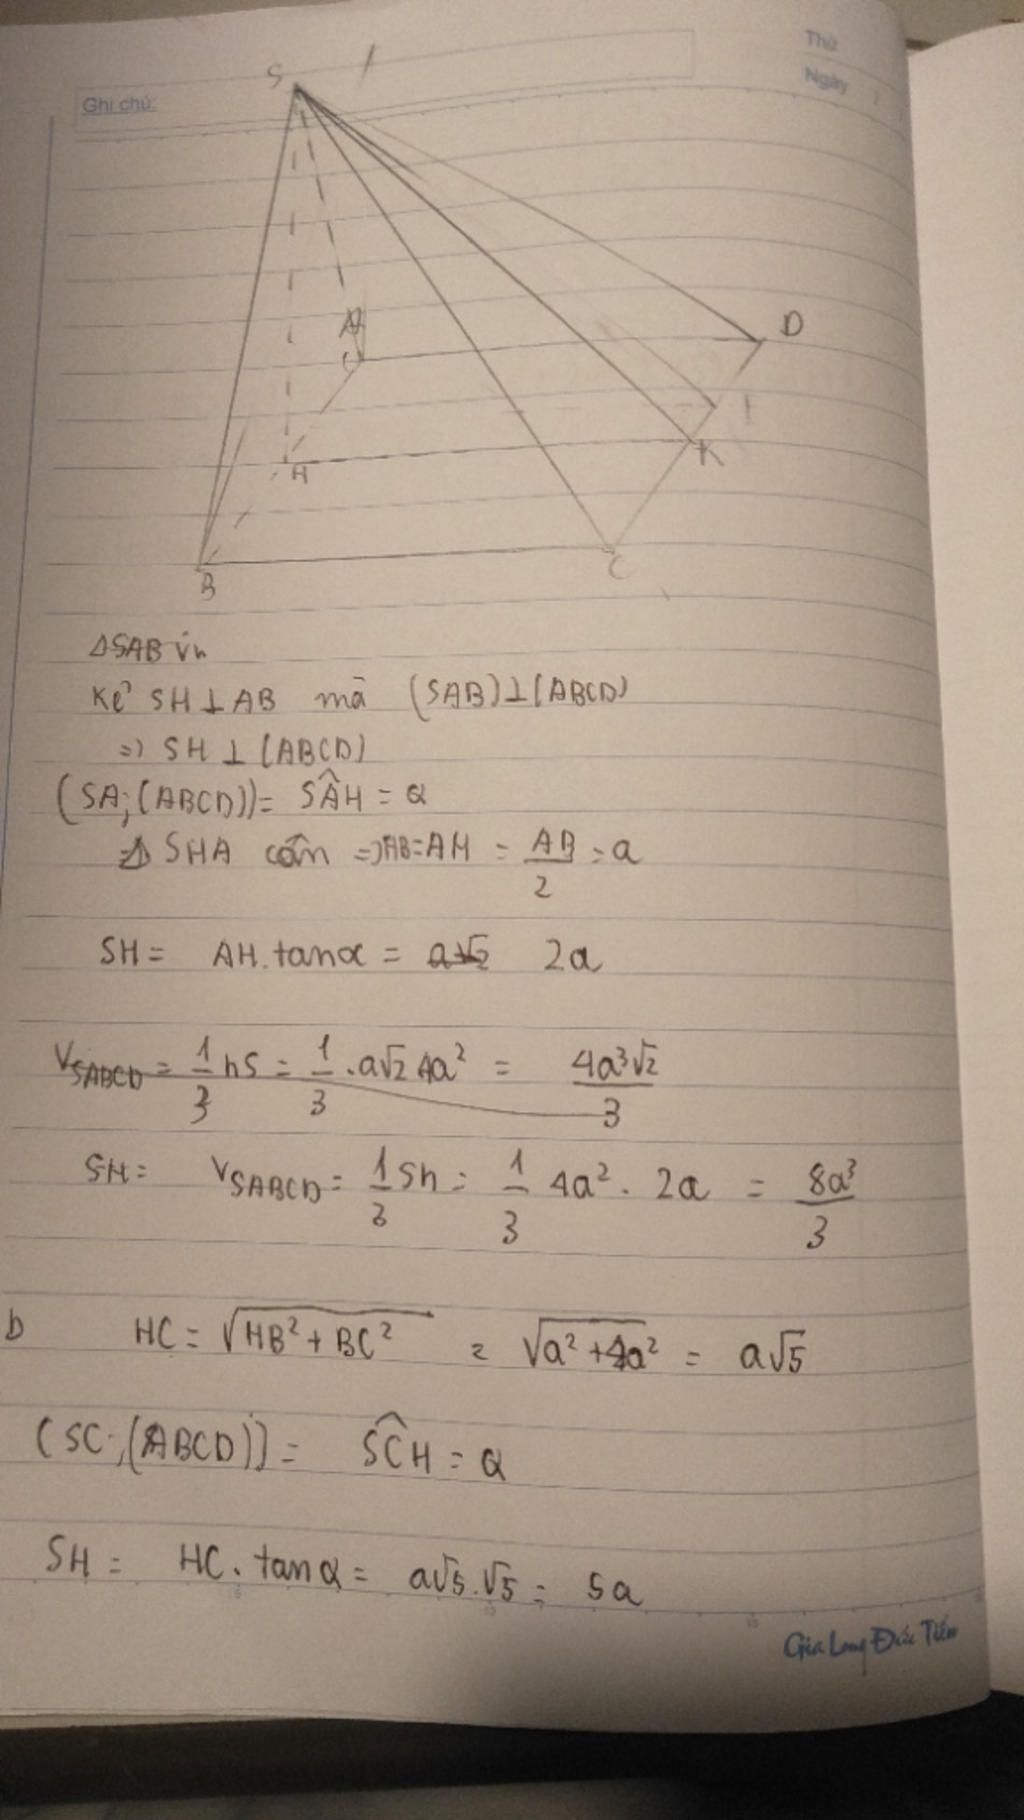 Thứ
Ghi chú:
Ngày
S
A
D
H
I
K
B
C
ΔSAB
Kẻ SH⊥AB mà (SAB)⊥(ABCD)
=) SH ⊥ (ABCD)
(SA;(ABCD))= SÂH = α
SHA cân =) AB=AH = AB/2 = a
SH = AH.tanα = a√2 2a
V SABCD = 1/3 hS = 1/3 . a√2 4a² = 4a³√2/3
SH = V SABCD = 1/3 Sh = 1/3 4a² . 2a = 8a³/3
b HC = √HB²+BC² = √a²+4a² = a√5
(SC;(ABCD)) = SĈH = α
SH = HC.tanα = a√5.√5 = 5a
Gia Long Đức Tiến